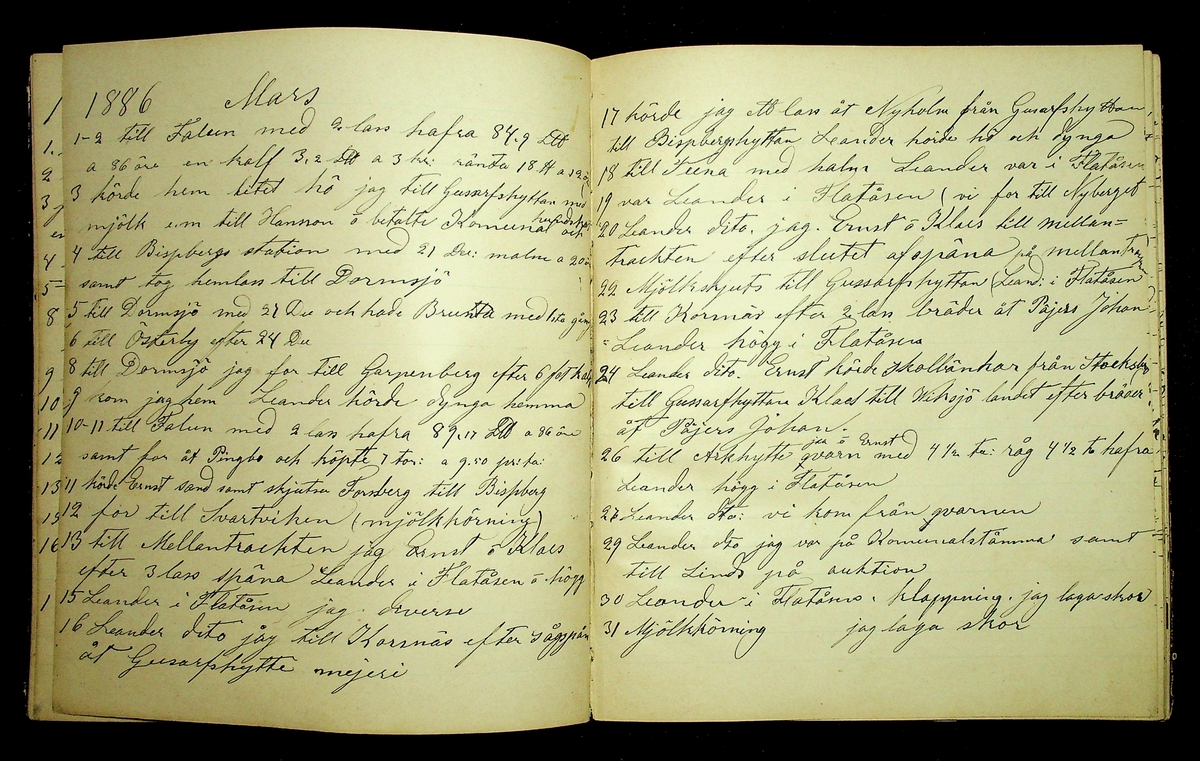 1886 Mars
1-2 till Falun med 2 lass hafra 84.9
a 86 öre en half 3,2 a 3 kr: ränta 18
3 körde hem litet hö jag till Gussarfshyttan med
mjölk e.m till Hanson o betalte Komunal
4 till Bispbergs station med 21 malm a 20
samt tog hemlass till Dormsjö
5 till Dormsjö med 27 Du och hade med
6 till Österby efter 24 Du
8 till Dormsjö jag for till Garpenberg efter 6
9 kom jag hem Leander körde dynga hemma
10-11 till Falun med 2 lass hafra a 86 öre
samt for åt Pingbo och köpte 7 tor: a 9.50 pr to:
11 körde Ernst sand samt skjutsa Forsberg till Bispberg
12 for till Svartviken (mjölkkörning)
13 till Mellantrachten jag Ernst o Klaes
efter 3 lass späna Leander i Flatåsen o högg
15 Leander i Flatåsen jag. diverse
16 Leander dito jag till Korsnäs efter sågspån
åt Gusarfshytte mejeri
17 körde jag lass åt Nyholm från Gusarfshyttan
till Bispbergshyttan Leander körde hö och dynga
18 till med halm Leander var i Flatåsen
19 var Leander i Flatåsen (vi for till Nyberget
20 Leander dito. jag. Ernst o Klaes till mellan=
trachten efter slutet af späna på mellantra
22 Mjölkskjuts till Gussarfhyttan (Leand: i Flatåsen
23 till Korsnäs efter 2 lass bräder åt Päjers Johan
= Leander högg i Flatåsen
24 Leander dito. Ernst körde från
till Gussarfhyttan Klaes till landet efter bräder
åt Päjers Johan.
jag o Ernst
26 till qvarn med 4 1/2 tu: råg 4 1/2 to hafra
Leander högg i Flatåsen
27 Leander dto: vi kom från qvarnen
29 Leander dto jag var på Komunalstämma samt
till Linds på auktion
30 Leander i Flatåsen. klappning. jag laga skor
31 Mjölkkörning jag laga skor